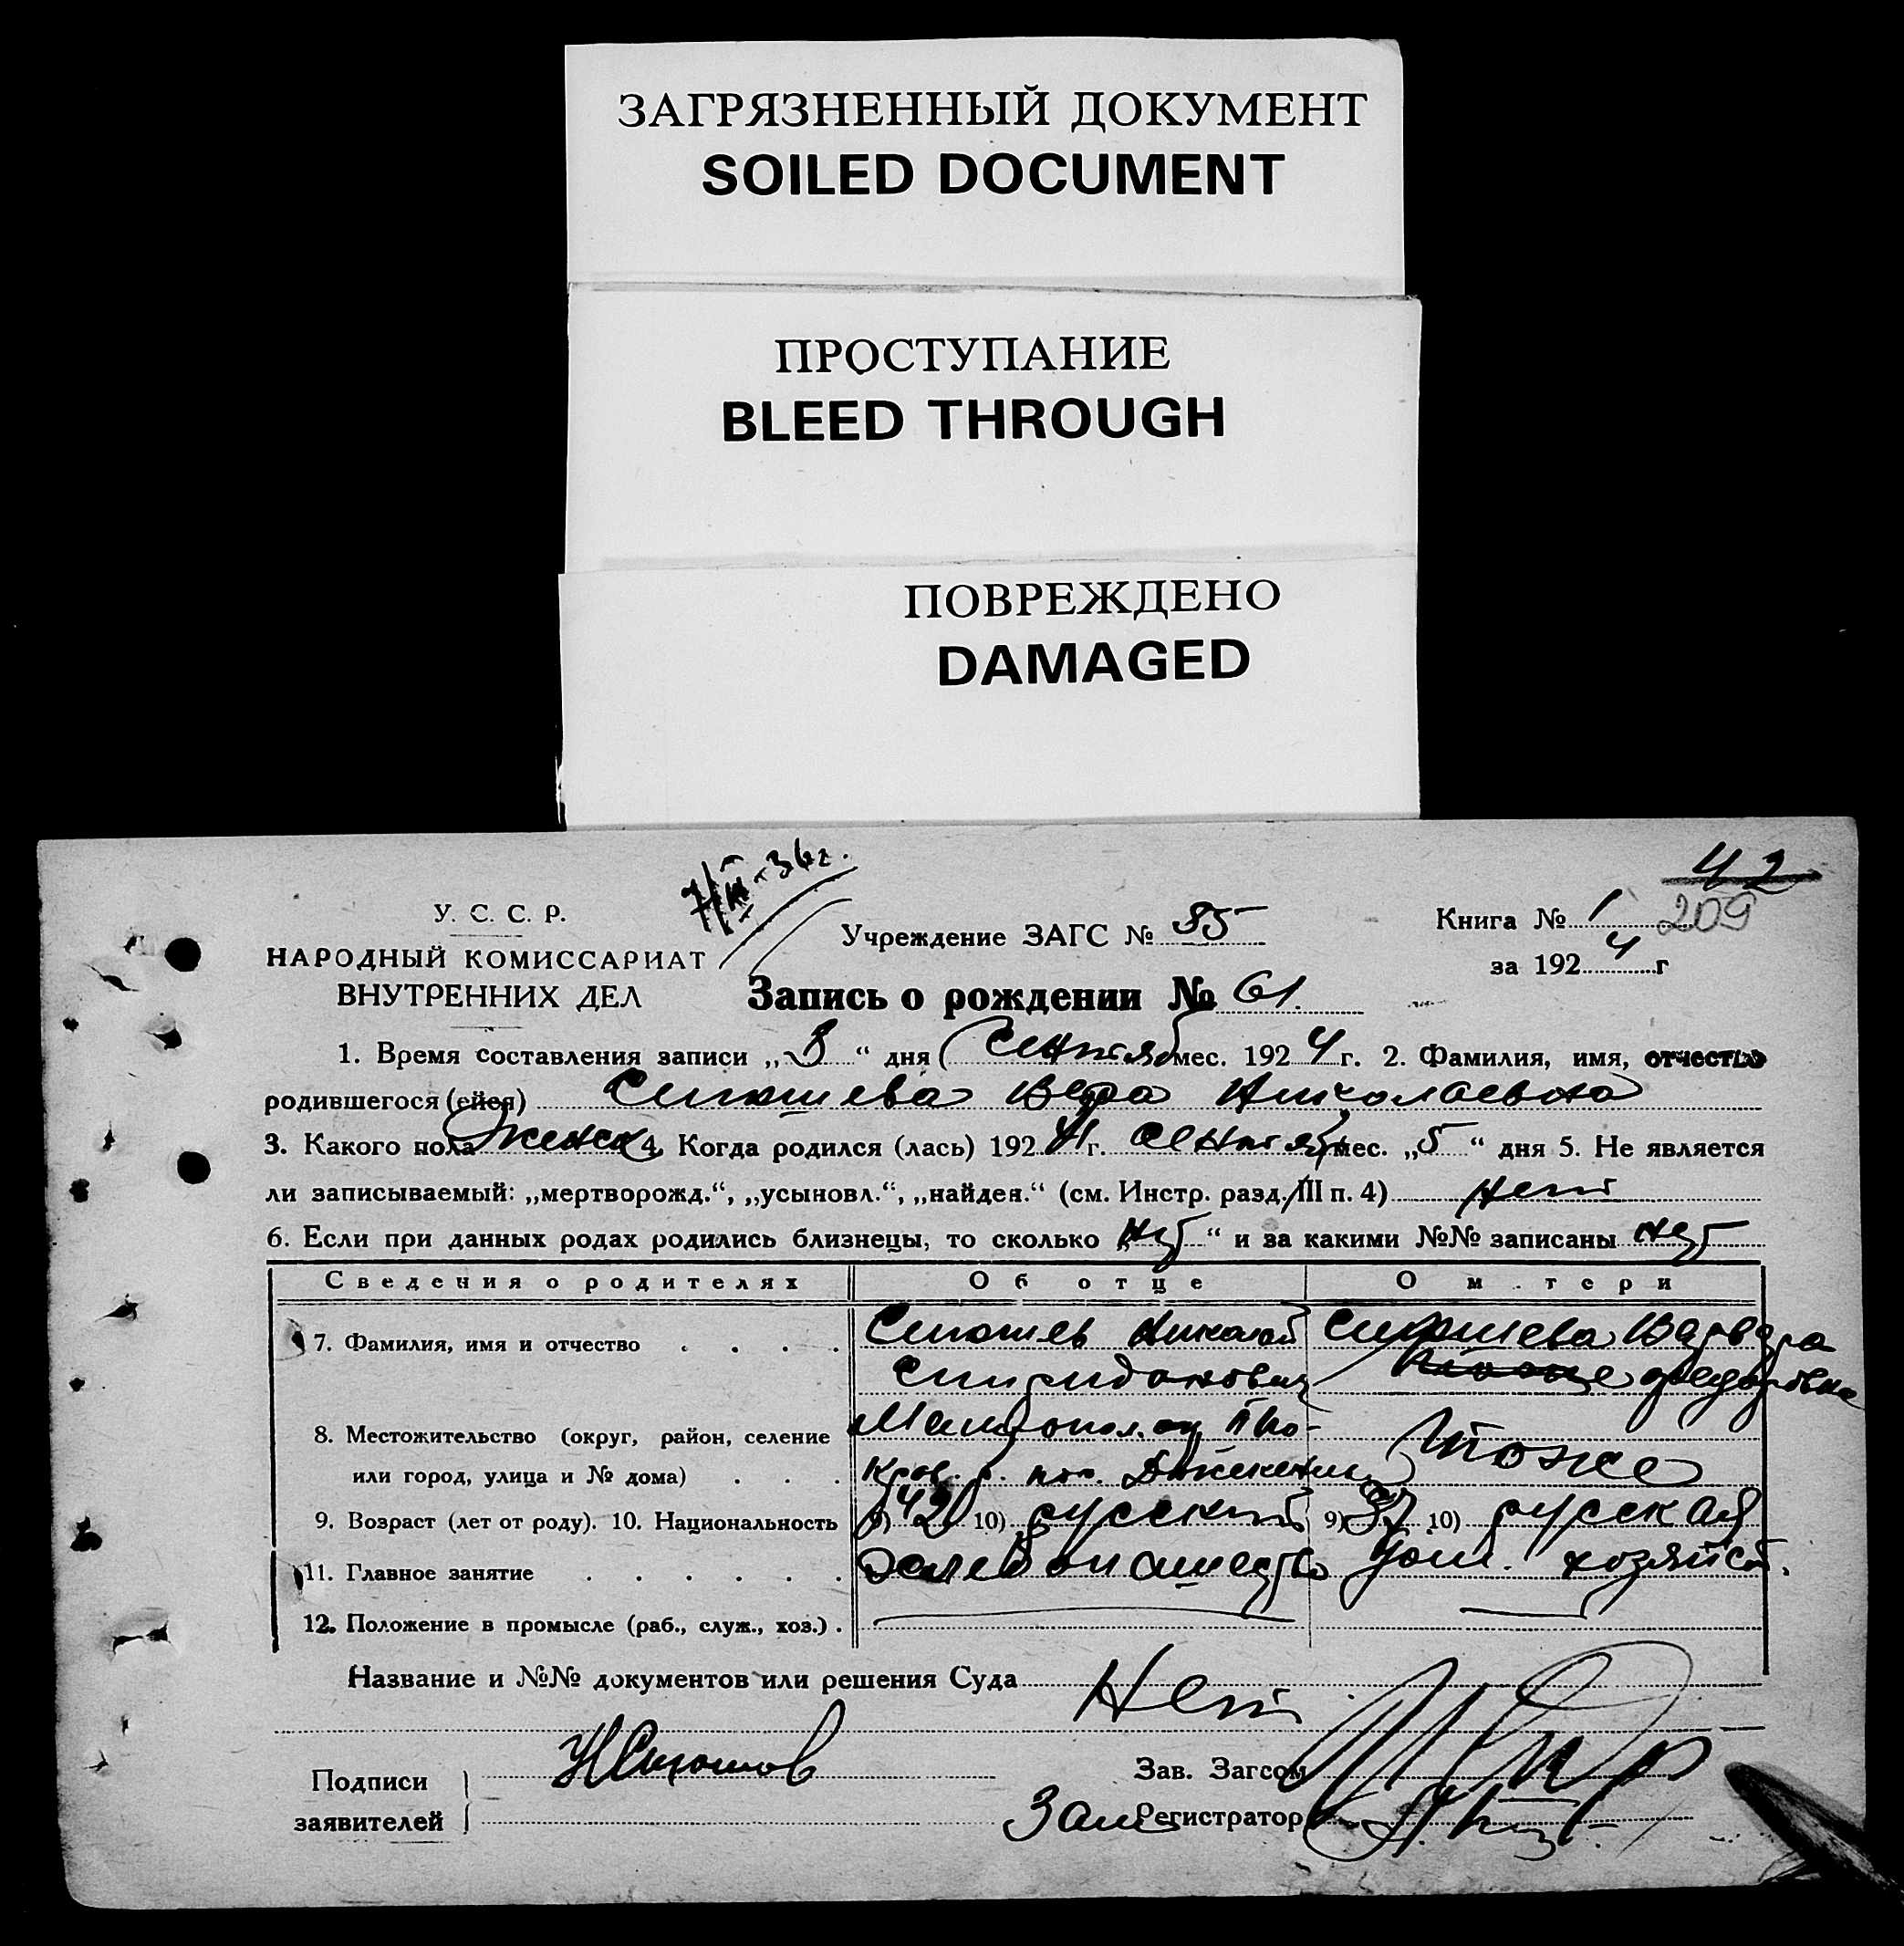 ЗАГРЯЗНЕННЫЙ ДОКУМЕНТ
SOILED DOCUMENT
ПРОСТУПАНИЕ
BLEED THROUGH
ПОВРЕЖДЕНО
DAMAGED
42
У. С. С. Р.
НАРОДНЫЙ КОМИССАРИАТ
ВНУТРЕННИХ ДЕЛ
Учреждение ЗАГС № 85
Книга № 1 209
за 1924 г
Запись о рождении № 61.
1. Время составления записи „8“ дня Сентяб мес. 1924 г. 2. Фамилия, имя, отчество
родившегося (ейся) Вера Николаевна
3. Какого пола женск 4. Когда родился (лась) 1924 г. Сентяб мес. „5“ дня 5. Не является
ли записываемый: „мертворожд.“, „усыновл.“, „найден.“ (см. Инстр. разд. III п. 4) Нет
6. Если при данных родах родились близнецы, то сколько „нет“ и за какими №№ записаны нет
Сведения о родителях Об отце О м.тери
7. Фамилия, имя и отчество Николай Варвара
Спиридонович Федоровна
8. Местожительство (округ, район, селение Мелитопол. ок. По-
или город, улица и № дома) кров. р. пос. Тоже
9. Возраст (лет от роду). 10. Национальность 9) 42 10) русский 9) 37 10) русская
11. Главное занятие Хлебопашество дом. хозяйст.
12. Положение в промысле (раб., служ., хоз.)
Название и №№ документов или решения Суда Нет
Подписи
заявителей
Зав. Загсом
Зам Регистратор